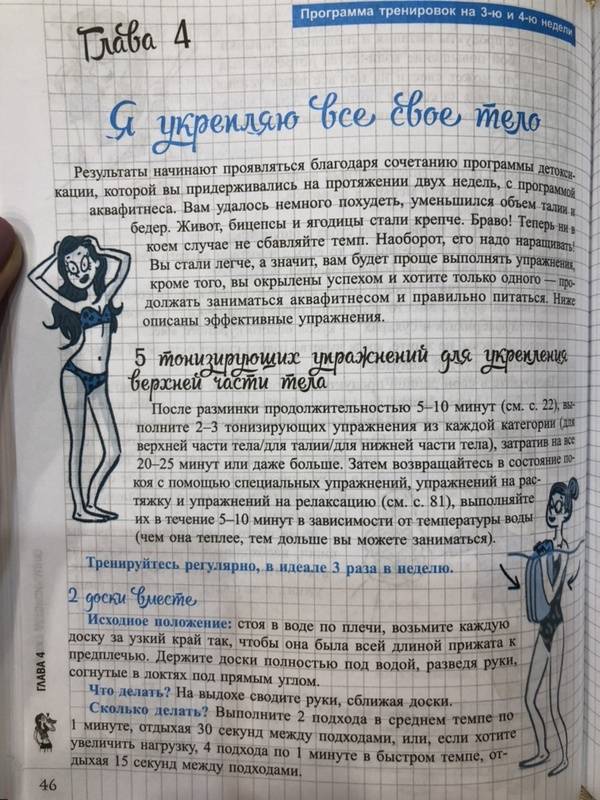 Программа тренировок на 3-ю и 4-ю недели
Глава 4
Я укрепляю все свое тело
Результаты начинают проявляться благодаря сочетанию программы детокси-
кации, которой вы придерживались на протяжении двух недель, с программой
аквафитнеса. Вам удалось немного похудеть, уменьшился объем талии и
бедер. Живот, бицепсы и ягодицы стали крепче. Браво! Теперь ни в
коем случае не сбавляйте темп. Наоборот, его надо наращивать!
Вы стали легче, а значит, вам будет проще выполнять упражнения,
кроме того, вы окрылены успехом и хотите только одного — про-
должать заниматься аквафитнесом и правильно питаться. Ниже
описаны эффективные упражнения.
5 тонизирующих упражнений для укрепления
верхней части тела
После разминки продолжительностью 5–10 минут (см. с. 22), вы-
полните 2–3 тонизирующих упражнения из каждой категории (для
верхней части тела/для талии/для нижней части тела), затратив на все
20–25 минут или даже больше. Затем возвращайтесь в состояние по-
коя с помощью специальных упражнений, упражнений на рас-
тяжку и упражнений на релаксацию (см. с. 81), выполняйте
их в течение 5–10 минут в зависимости от температуры воды
(чем она теплее, тем дольше вы можете заниматься).
Тренируйтесь регулярно, в идеале 3 раза в неделю.
2 доски вместе
Исходное положение: стоя в воде по плечи, возьмите каждую
доску за узкий край так, чтобы она была всей длиной прижата к
предплечью. Держите доски полностью под водой, разведя руки,
согнутые в локтях под прямым углом.
Что делать? На выдохе сводите руки, сближая доски.
Сколько делать? Выполните 2 подхода в среднем темпе по
1 минуте, отдыхая 30 секунд между подходами, или, если хотите
увеличить нагрузку, 4 подхода по 1 минуте в быстром темпе, от-
дыхая 15 секунд между подходами.
ГЛАВА 4
46